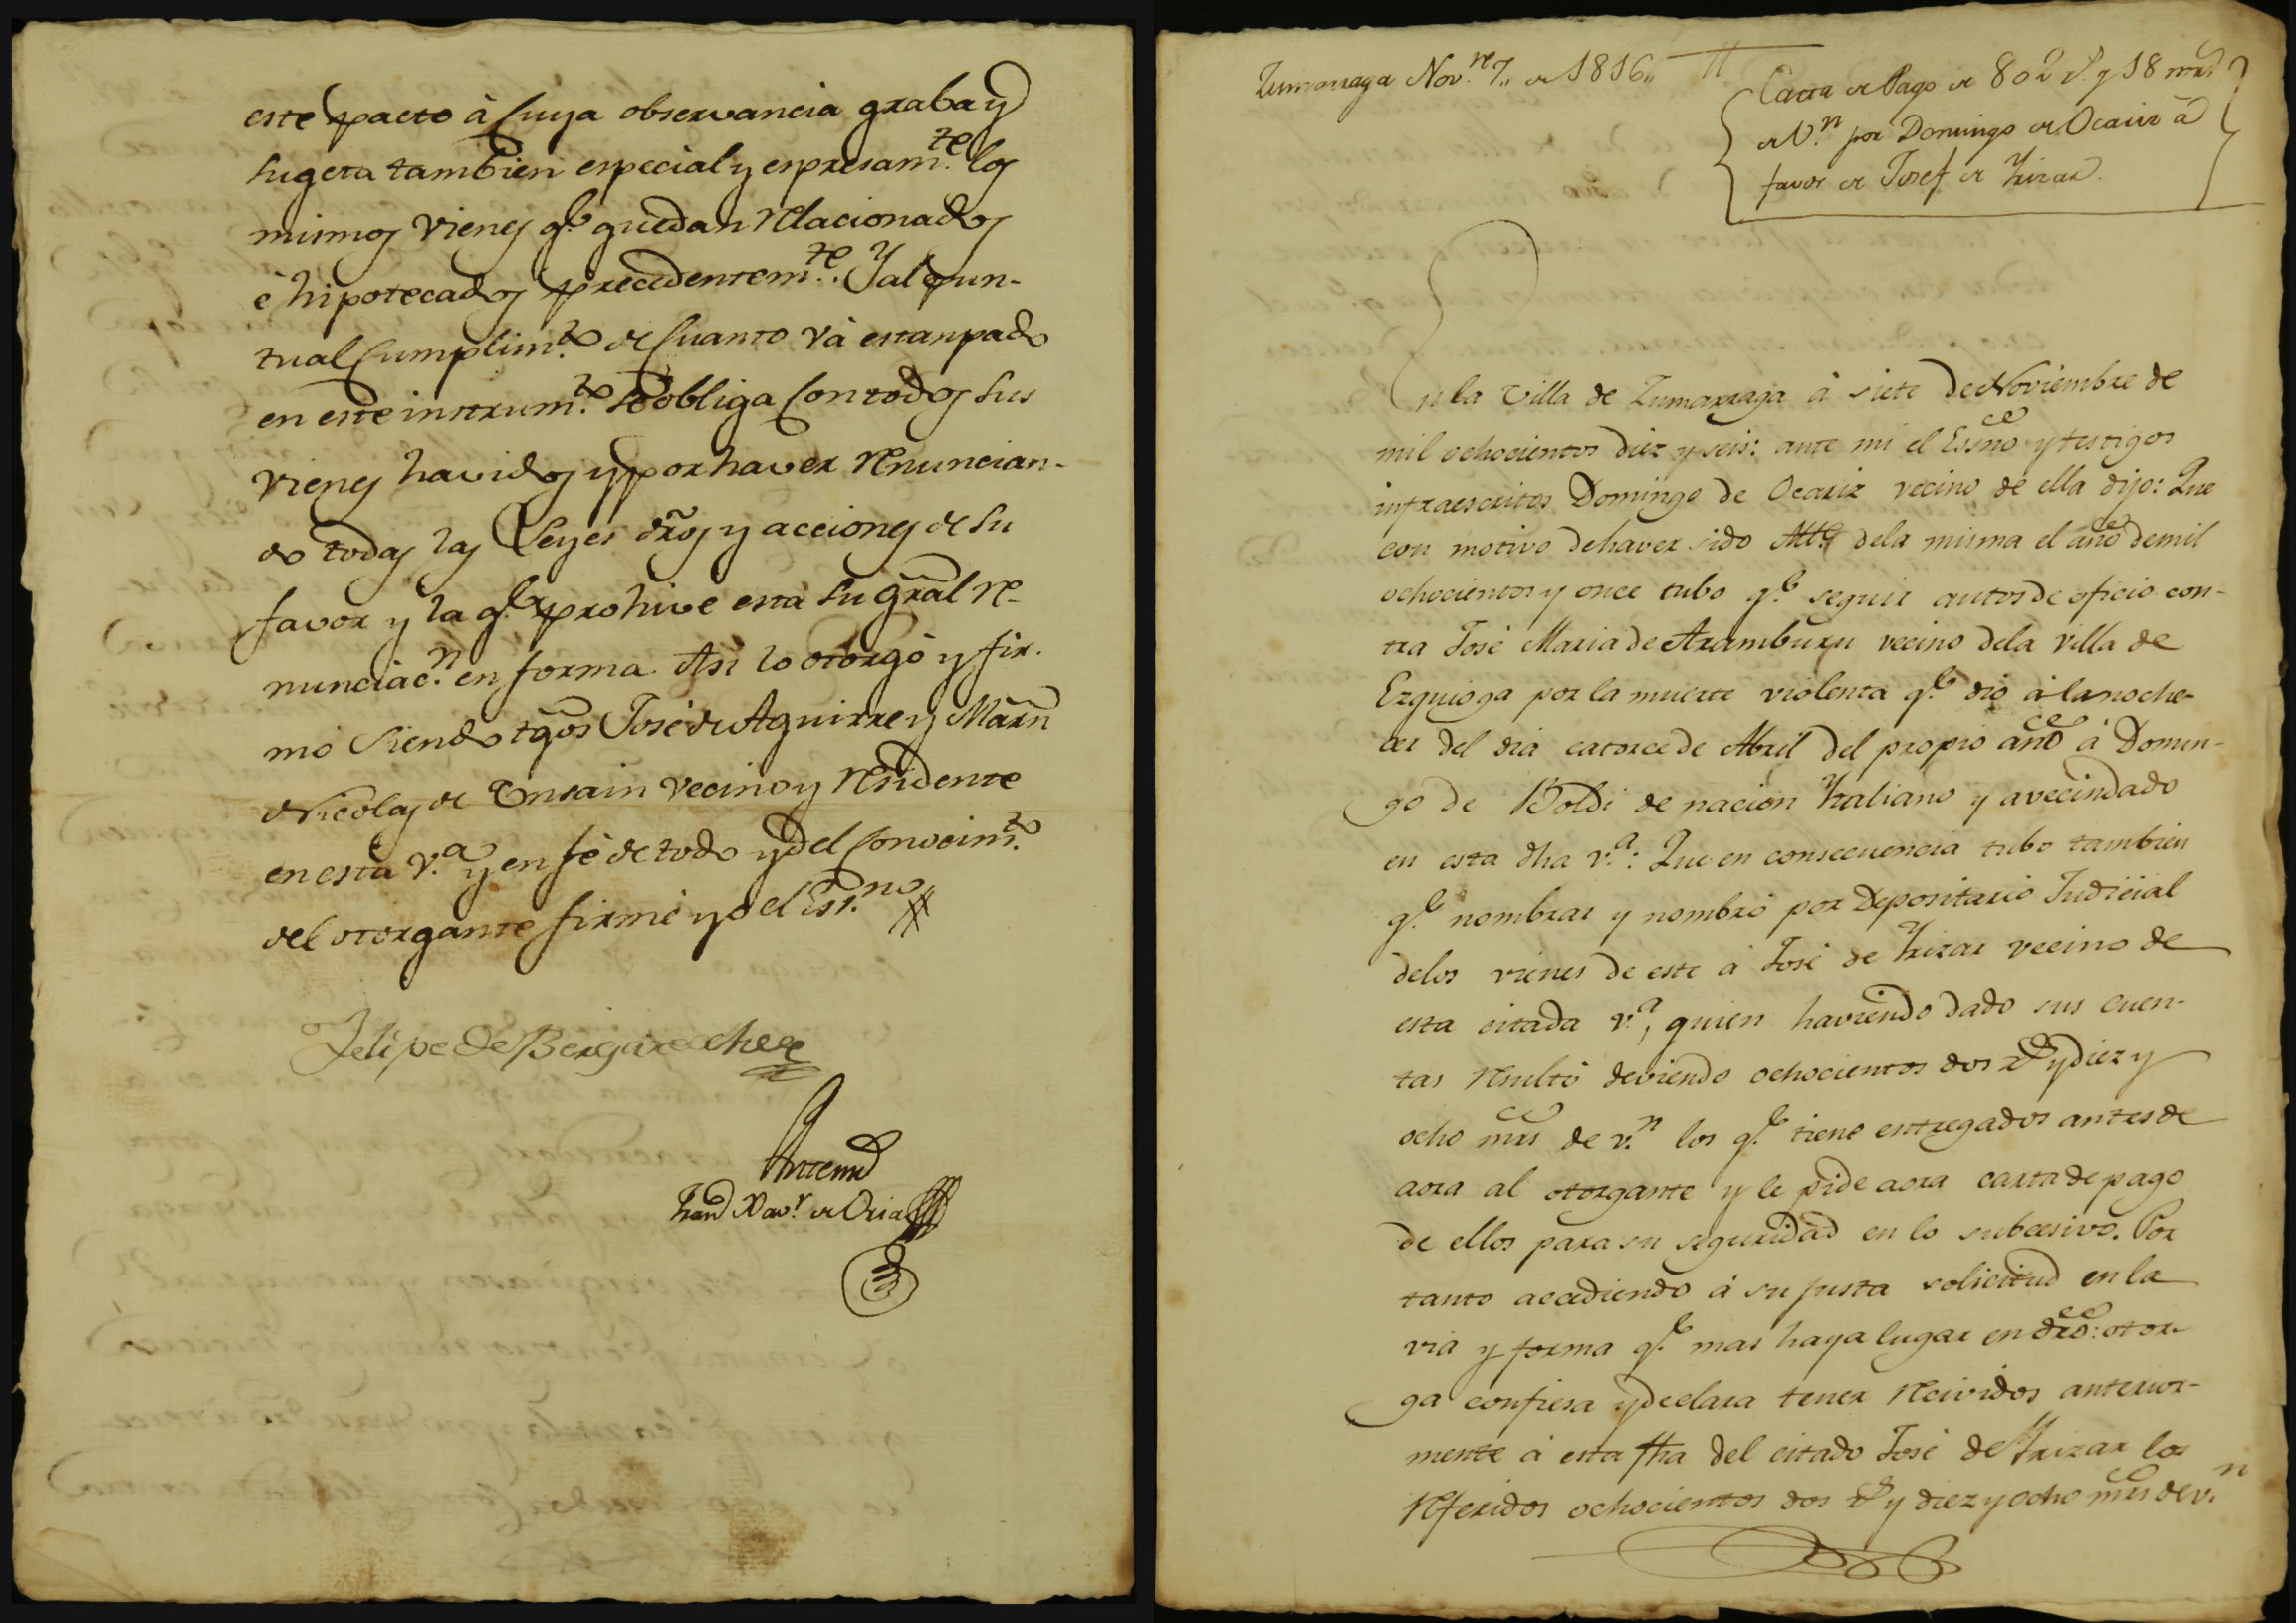 este pacto à cuya observancia graba y
sugeta tambien especial y espresam.te los
mismos vienes q.e quedan relacionados
è hipotecados precedentem.te. Y al pun-
tual cumplim.to de cuanto và estanpado
en este instrum.to se obliga con todos sus
vienes havidos y por haver renuncian-
do todas las Leyes dros y acciones de su
favor y la q.e prohive esta su gral re-
nunciac.n en forma. Asi lo otorgò y fir-
mò siendo tgos José de Aguirre y Marn
Nicolas de Ensain vecino y residente
en esta V.a y en fè de todo y del conocim.to
del otorgante firmé yo el Ess.no
Felipe de Bergareche
Ante mi
Xav.r de Oria
Zumarraga Nov.re 7,, de 1816,,
Carta de Pago de 802 r.s y 18 mrs
de V.n por Domingo de Ocariz à
favor de Josef de Yrizar.
En la Villa de Zumarraga à siete de Noviembre de
mil ochocientos diez y seis: ante mi el Essno y testigos
infraescritos Domingo de Ocariz vecino de ella dijo: Que
con motivo de haver sido Al.e dela misma el año de mil
ochocientos y once tubo q.e seguir autos de oficio con-
tra José Maria de Aramburu vecino dela villa de
Ezquioga por la muerte violenta q.e dio à la noche-
cer del dia catorce de Abril del propio año à Domin-
go de Boldi de nacion Ytaliano y avecindado
en esta dha v.a: Que en consecuencia tubo tambien
q.e nombrar y nombró por Depositario Judicial
delos vienes de este á José de Yrizar vecino de
esta citada v.a, quien haviendo dado sus cuen-
tas resultó deviendo ochocientos dos r.s y diez y
ocho mrs de v.n los q.e tiene entregados antes de
aora al otorgante y le pide aora carta de pago
de ellos para su seguridad en lo subcesivo. Por
tanto accediendo á su justa solicitud en la
via y forma q.e mas haya lugar en dro: otor-
ga confiesa y declara tener recividos anterior-
mente á esta fha del citado José de Yrizar los
referidos ochocientos dos r.s y diez y ocho mrs de v.n